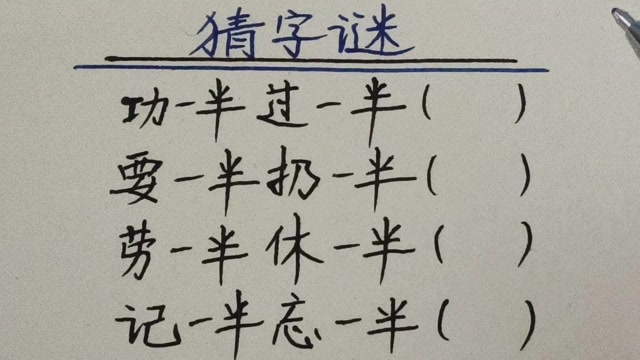 猜字谜
功一半过一半( )
要一半扔一半( )
劳一半休一半( )
记一半忘一半( )